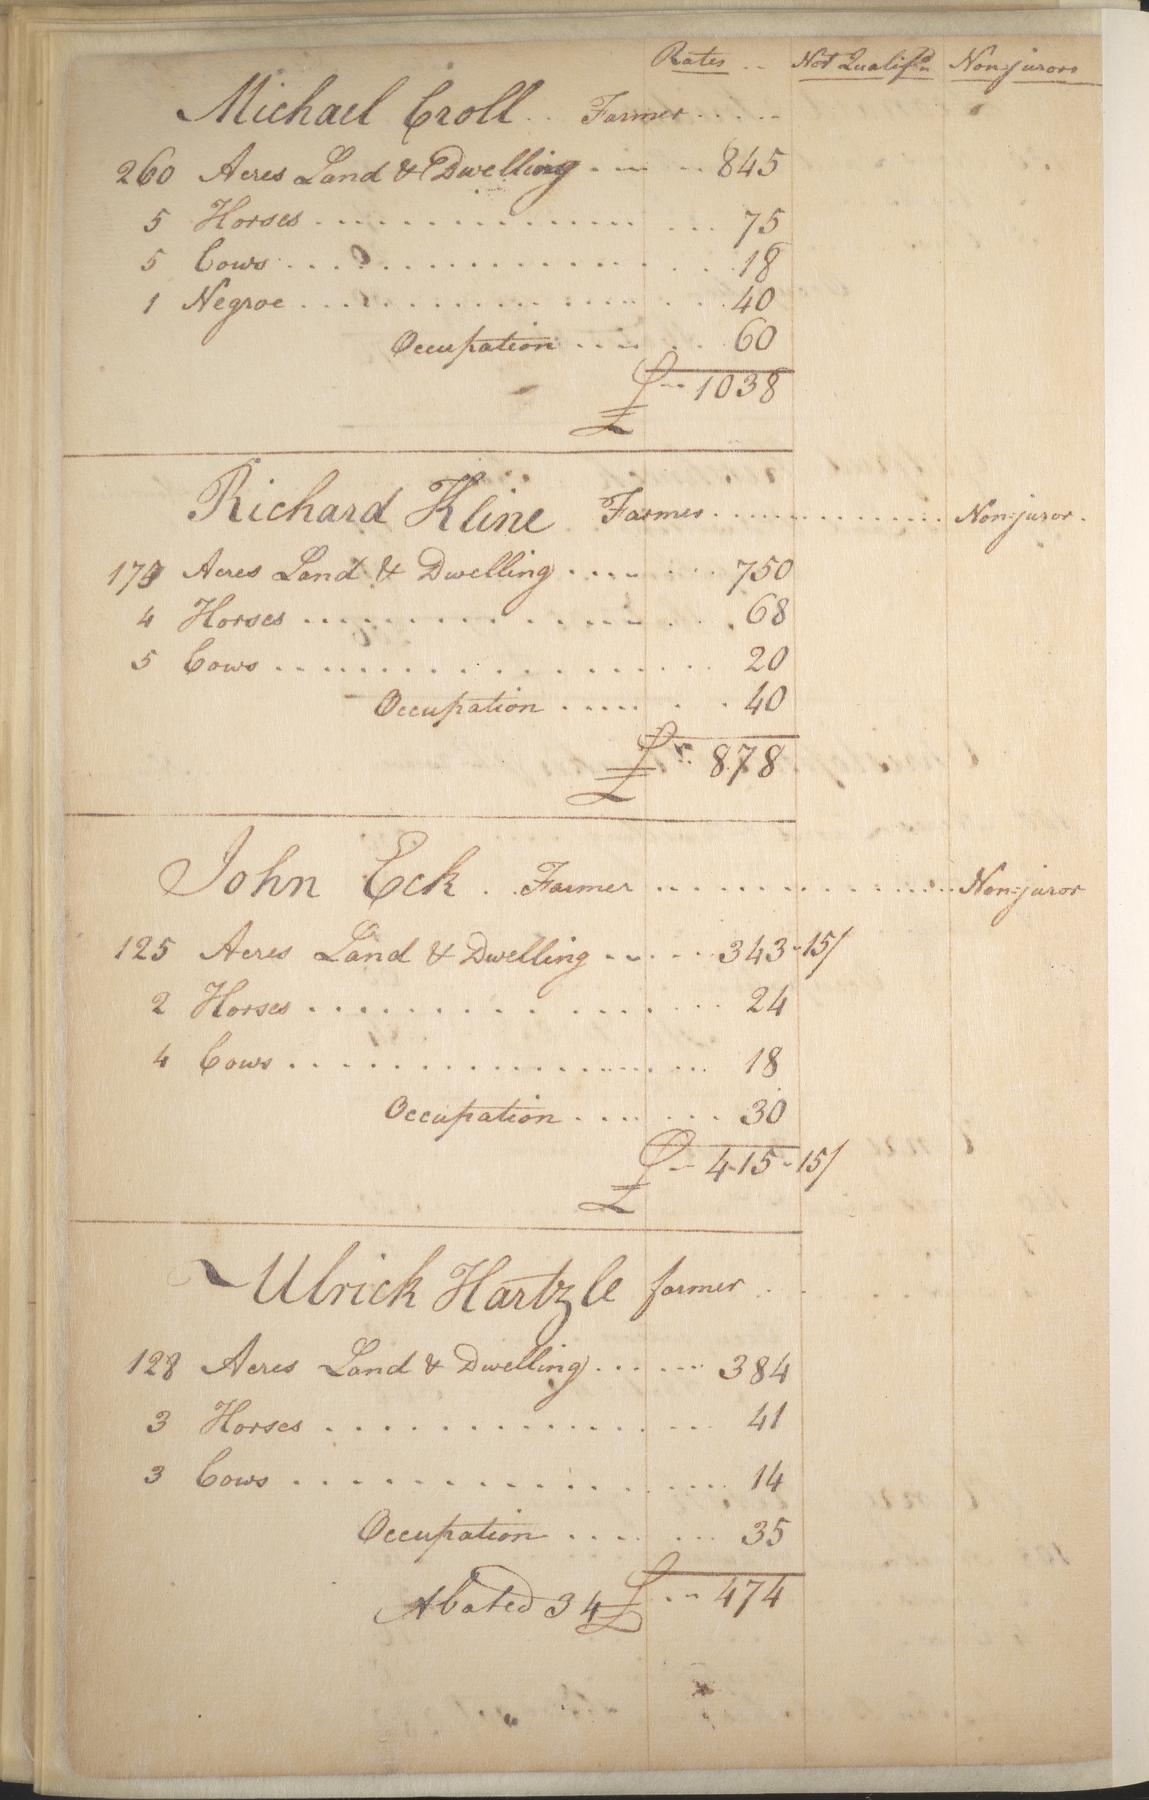 Rates .. Not Qualif'd Non-jurors
Michael Croll .. Farmer .....
260 Acres Land & Dwelling ... 845
5 Horses ... 75
5 Cows ... 18
1 Negroe ... 40
Occupation ... 60
£ -- 1038
Richard Kline Farmer ... Non-juror.
Acres Land & Dwelling ... 750
4 Horses ... 68
5 Cows ... 20
Occupation ... 40
£ -- 878
John Eck .. Farmer ... Non=juror
125 Acres Land & Dwelling ... 343-15/
2 Horses ... 24
4 Cows ... 18
Occupation ... 30
£ -- 415-15/
Ulrick Hartzle farmer ..
128 Acres Land & Dwelling ... 384
3 Horses ... 41
3 Cows ... 14
Occupation ... 35
Abated 34 £ ... 474